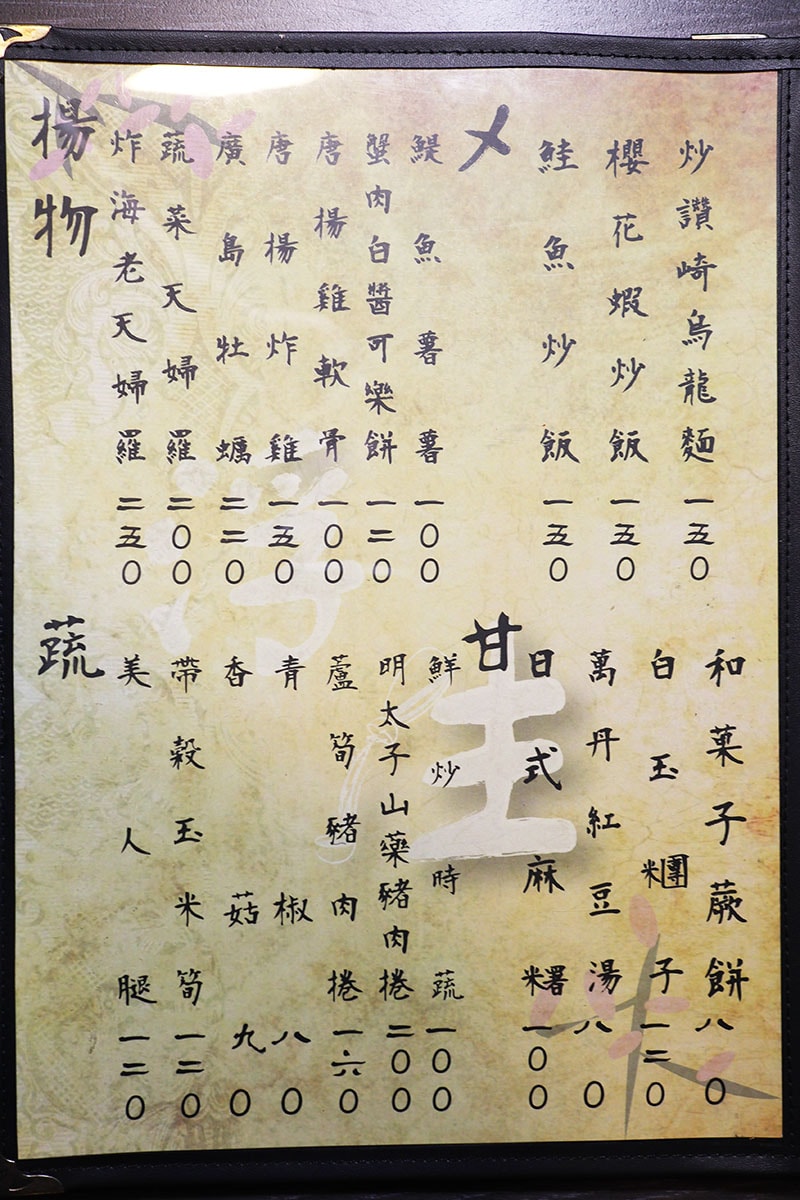 楊物
炸海老天婦羅 二五〇
蔬菜天婦羅 二〇〇
廣島牡蠣 二二〇
唐楊炸雞 一五〇
唐楊雞軟骨 一〇〇
蟹肉白醬可樂餅 一二〇
鯷魚薯薯 一〇〇
〆
鮭魚炒飯 一五〇
櫻花蝦炒飯 一五〇
炒讚崎烏龍麵 一五〇
蔬
美人腿 一二〇
帶穀玉米筍 一二〇
香菇 九〇
青椒 八〇
蘆筍豬肉捲 一六〇
明太子山藥豬肉捲 二〇〇
鮮炒時蔬 一〇〇
甘
日式麻糬 一〇〇
萬丹紅豆湯 八〇
白玉糰子 一二〇
和菓子蕨餅 八〇
浮生